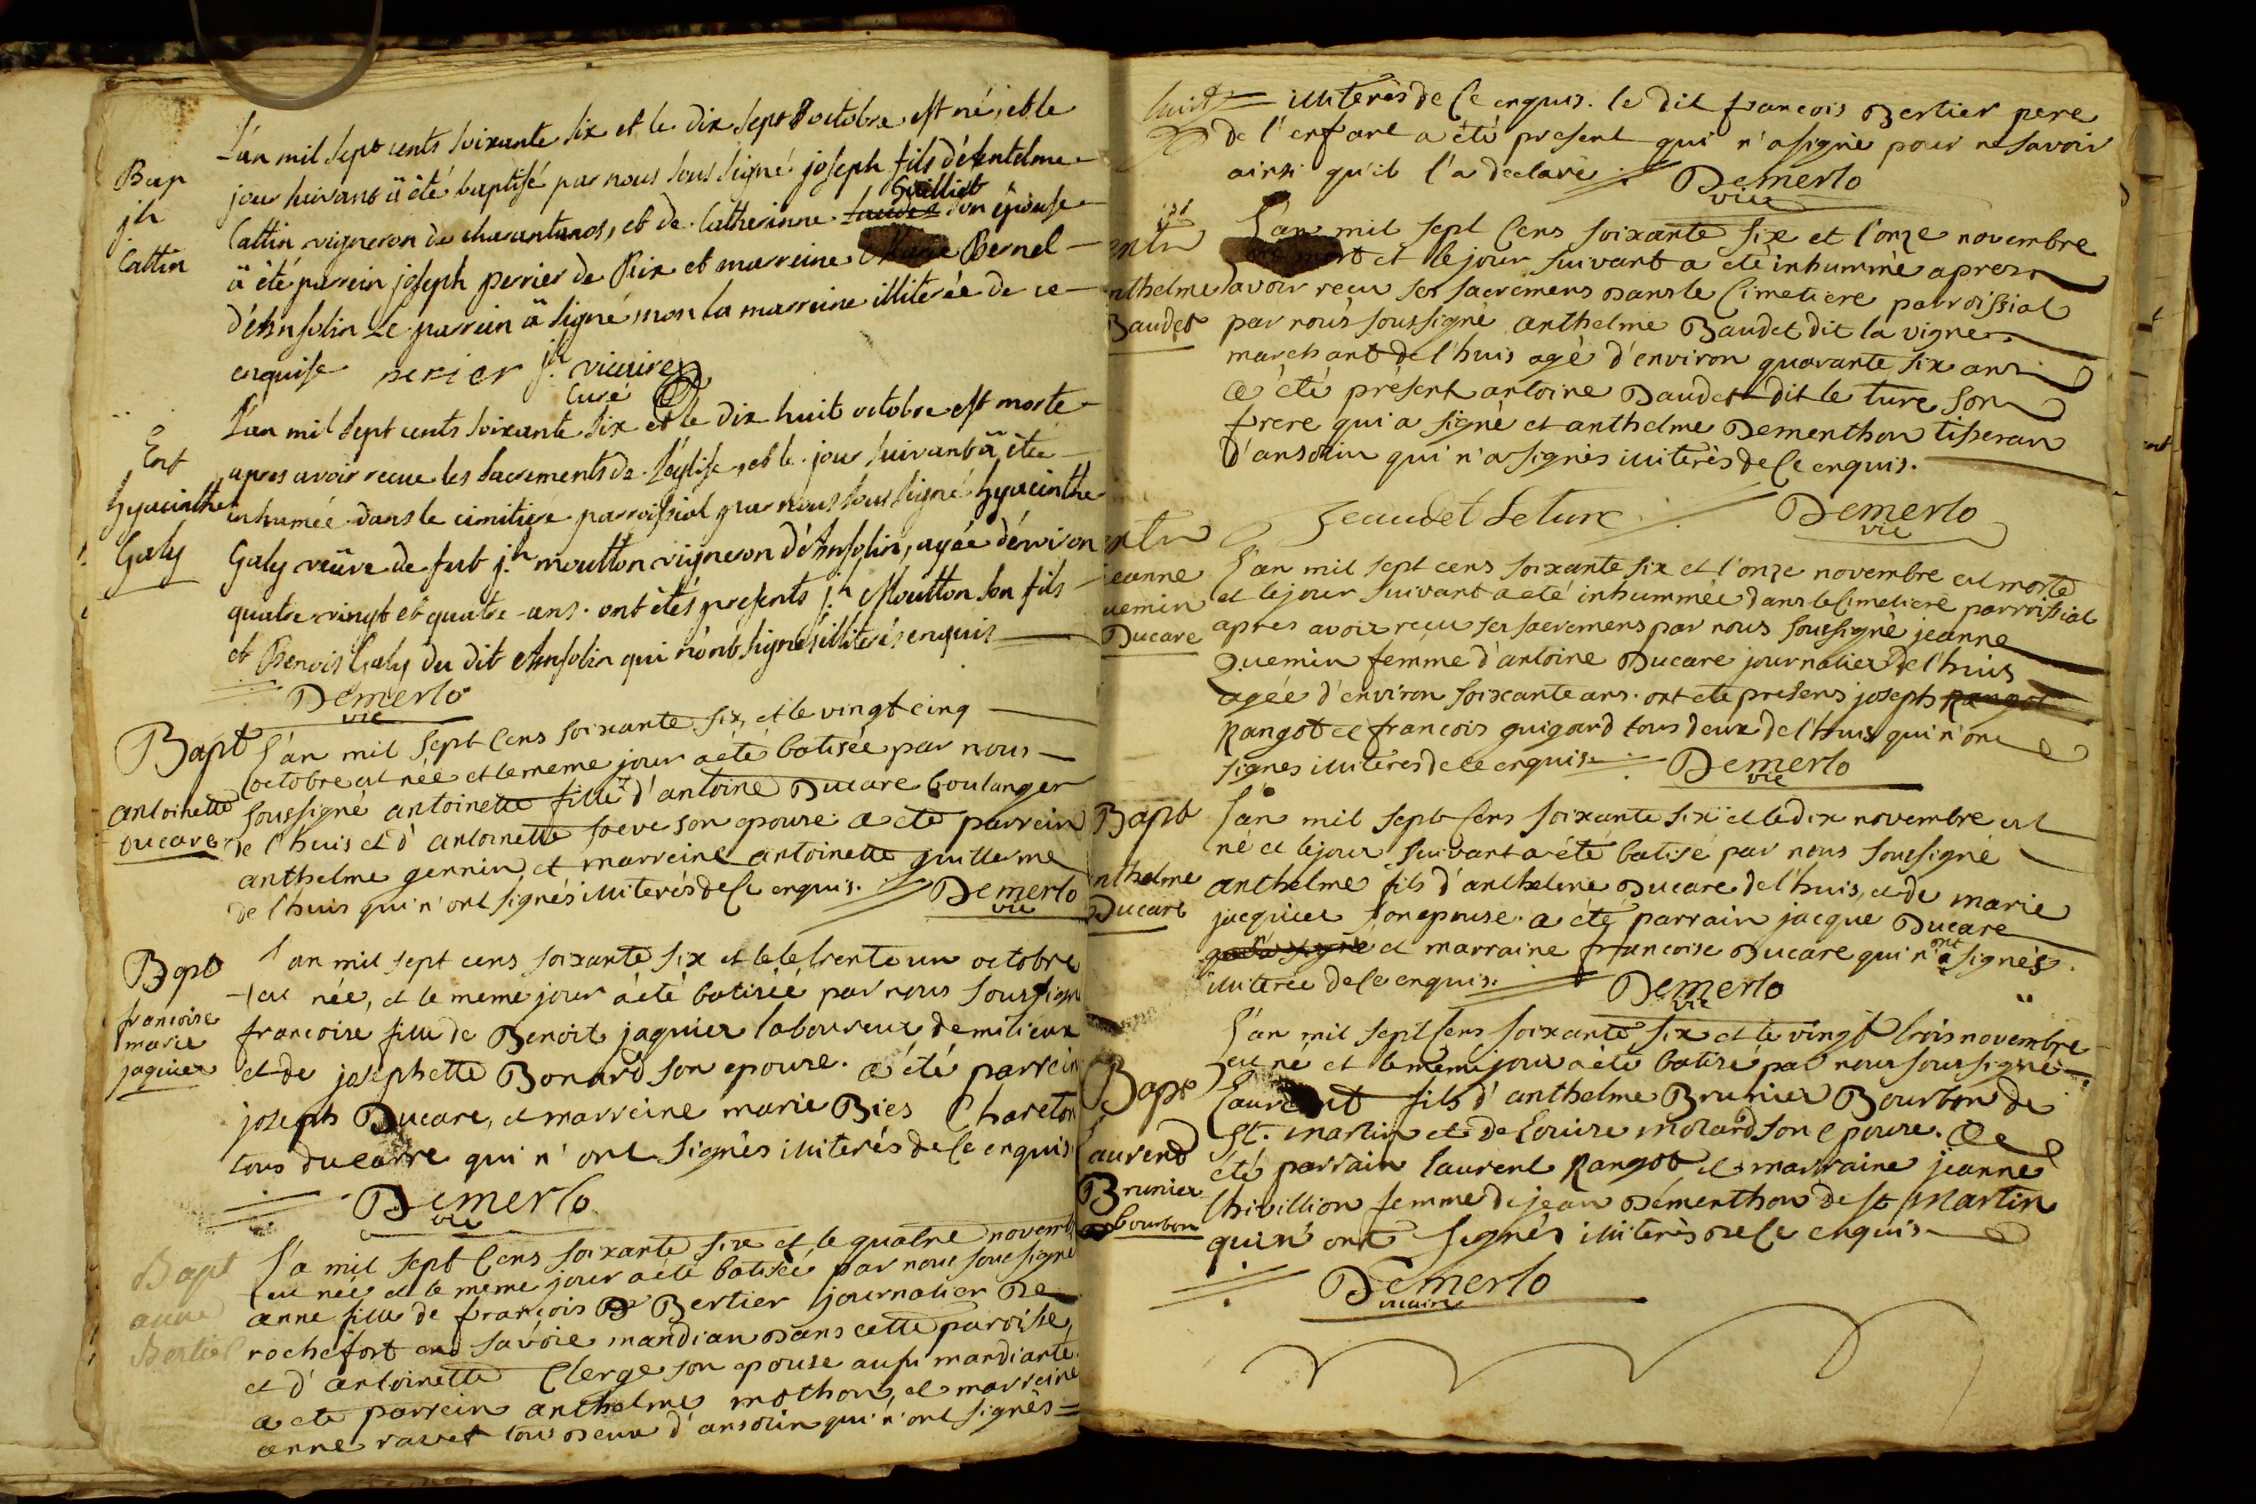 L'an mil sept cents soixante six et le dix sept octobre est né, et le
Bap
jour suivant ä été baptisé par nous sous signé joseph fils d'Antelme
jh
Guilliot
Cattin
Cattin vigneron de charantanos, et de Catherinne son épouse
ä été parrein joseph perrier de Rix et marreine Marie Bernel
d'Ansolin Le parrein ä signé, non la marreine illiterée de ce
enquise perier jh. vicaire
Curé
L'an mil sept cents soixante six et le dix huit octobre est morte
Ent
apres avoir reçue les sacrements de l'église, et le jour suivant ä éte
hyacinthe
inhumée dans le cimitiere parroissial par nous sous signé hyacinthe
Galy
Galy veüve de fut jh moutton vigneron d'Ansolin, agée d'environ
quatre vingt et quatre ans. ont étés presents jh Moutton son fils
et Benois Galy du dit Ansolin qui n'ont signés illiterés enquis
Demerlo
vic
Bapt
L'an mil sept cens soixante six, et le vingt cinq
octobre est née et le meme jour a été batisée par nous
antoinette
soussigné antoinette fille d'antoine Ducare boulanger
Ducare
de l'huis et d'antoinette soeve son epouse. a ete parrein
anthelme gennin, et marreine antoinette guillerme
de l'huis qui n'ont signés illiterés de ce enquis. Demerlo
vic
Bapt
L'an mil sept cens soixante six et le trente un octobre
est née, et le meme jour a été batisée par nous soussigné
francoise
marie
jaquier
francoise fille de Benoit jaquier laboureur de milieux
et de josephette Bonard son epouse. a été parrein
joseph Ducare, et marreine marie Bies Chareton
tous ducarre qui n'ont signés illiterés de ce enquis
Demerlo
vic
Bapt
L'a mil sept cens soixante six et le quatre novemb
est née et le meme jour a été batisée par nous soussigné
anne
anne fille de françois Bertier journalier De
Bertier
rochefort en savoie mandian dans cette paroisse,
et d'antoinette Clerge son epouse aussi mandiante.
a ete parrein anthelme mothon, et marreine
anne ravet tous deux d'ansolin qui n'ont signés
illiterés de ce enquis. le dit francois Bertier pere
de l'enfant a été present qui n'a signé pour ne savoir
ainsi qu'il l'a declaré. Demerlo
vic
L'an mil sept cens soixante six et l'onze novembre
est mort et le jour suivant a eté inhummé apres
anthelme
avoir recu ses sacremens dans le Cimetiere parroissial
Baudet
par nous soussigné anthelme Baudet dit la vigne
marchant de l'huis agé d'environ quarante six ans
a été présent antoine Baudet dit le turc son
frere qui a signé et anthelme Dementhon tisseran
d'ansolin qui n'a signés illiterés de ce enquis.
Beaudet Leturc Demerlo
vic
L'an mil sept cens soixante six et l'onze novembre est morte
jeanne
et le jour suivant a eté inhummée dans le Cimetiere parroissial
quemin
Ducare
apres avoir recu ses sacremens par nous soussigné jeanne
Quemin femme d'antoine Ducare journalier de l'huis
agée d'environ soixante ans. ont ete presens joseph Rangot
Rangot et francois guigard tous deux de l'huis qui n'ont
signes illiteres de ce enquis. Demerlo
vic
Bapt
L'an mil sept cens soixante six et le dix novembre est
né et le jour suivant a été batisé par nous soussigné
anthelme
anthelme fils d'anthelme Ducare de l'huis, et de marie
Ducare
jacquier son epouse. a été parrain jacque Ducare
et marraine francoise Ducare qui n'ont signés.
illiterée de ce enquis. Demerlo
vic
L'an mil sept cens soixante six et le vingt trois novembre
est né et le meme jour a été batisé par nous soussigné
Bapt
Laurent fils d'anthelme Brunier Bourbon de
St. martin et de Louise molard son epouse. a
Laurend
été parrain laurent Rangot et marraine jeanne
Brunier
Chivillion femme de jean Dementhon de St Martin
bourbon
qui n'ont signés illiterés de ce enquis
Demerlo
vicaire